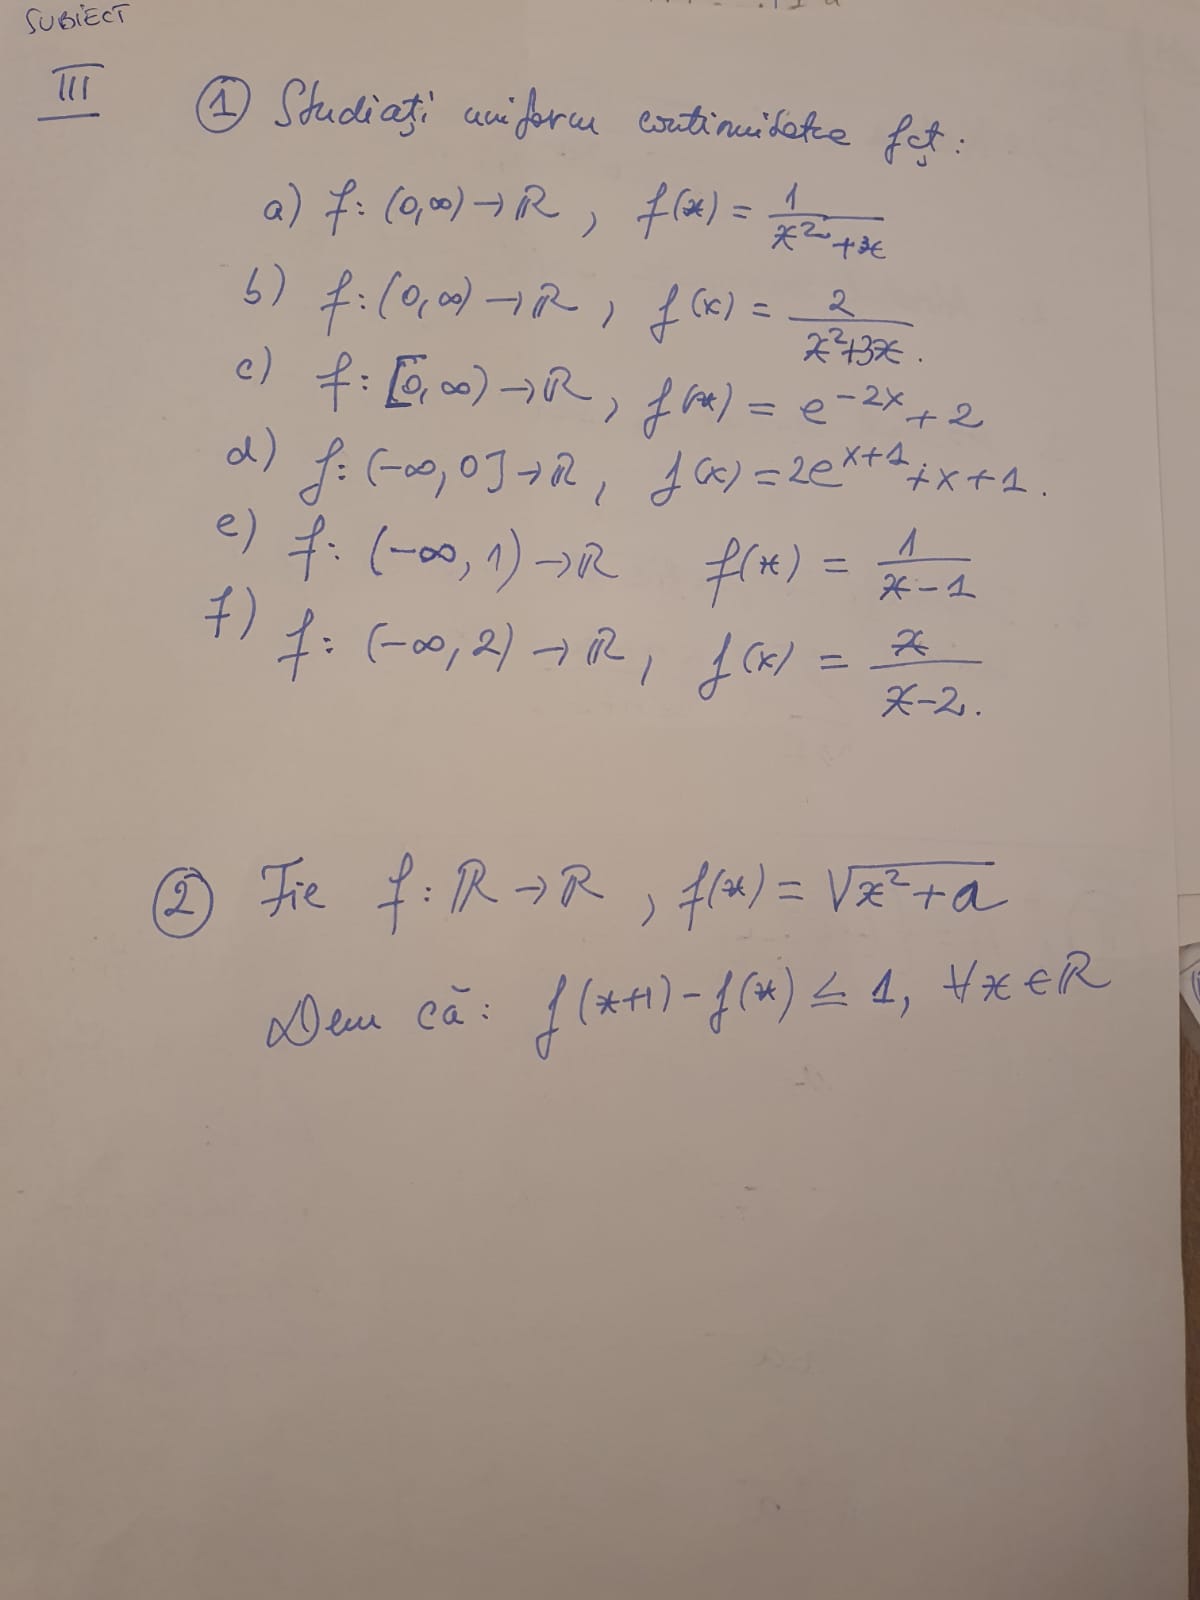 SUBIECT
III
① Studiați uniform continuitatea fcț:
a) f: (0,∞) → ℝ, f(x) = 1/(x²+x)
b) f: (0,∞) → ℝ, f(x) = 2/(x²+3x).
c) f: [0,∞) → ℝ, f(x) = e^(-2x) + 2
d) f: (-∞,0] → ℝ, f(x) = 2e^(x+1) + x + 1.
e) f: (-∞,1) → ℝ f(x) = 1/(x-1)
f) f: (-∞,2) → ℝ, f(x) = x/(x-2).
② Fie f: ℝ → ℝ, f(x) = √(x²+a)
Dem că: f(x+1) - f(x) ≤ 1, ∀x∈ℝ